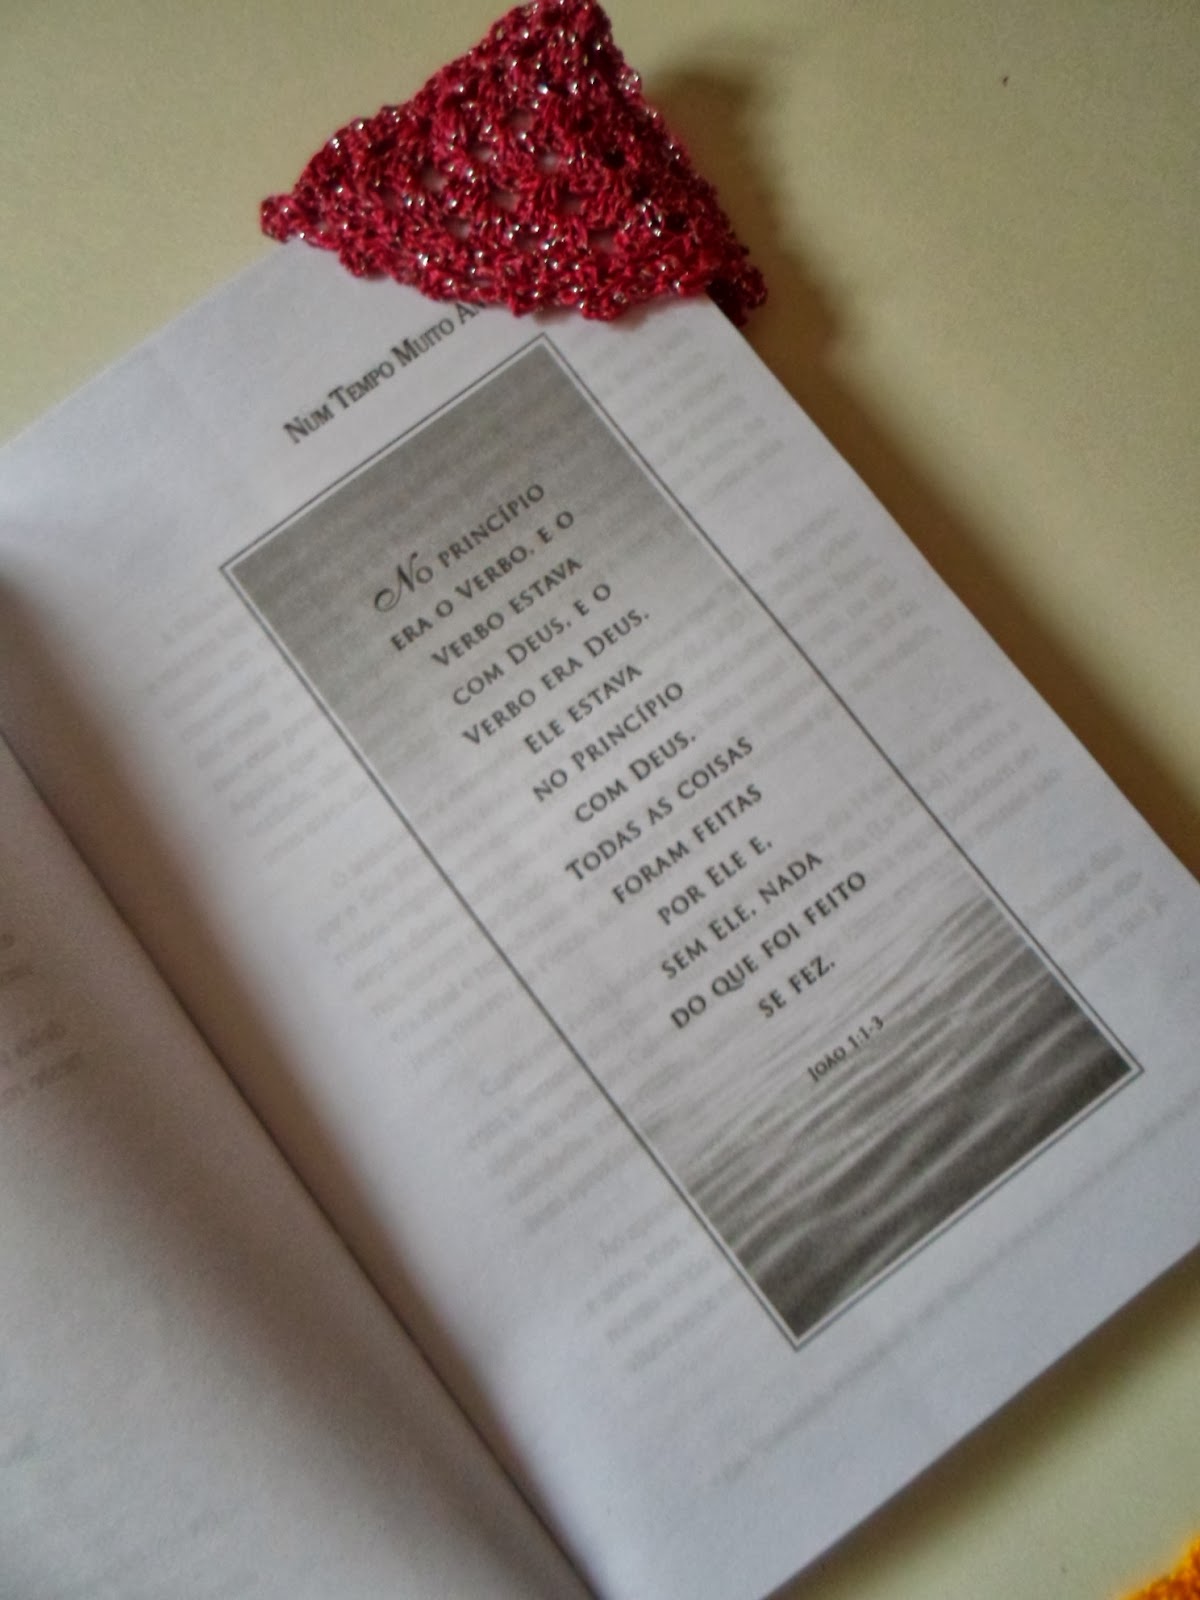 Num Tempo Muito
No princípio
era o Verbo, e o
Verbo estava
com Deus, e o
Verbo era Deus.
Ele estava
no princípio
com Deus.
Todas as coisas
foram feitas
por Ele e,
sem Ele, nada
do que foi feito
se fez.
João 1:1-3